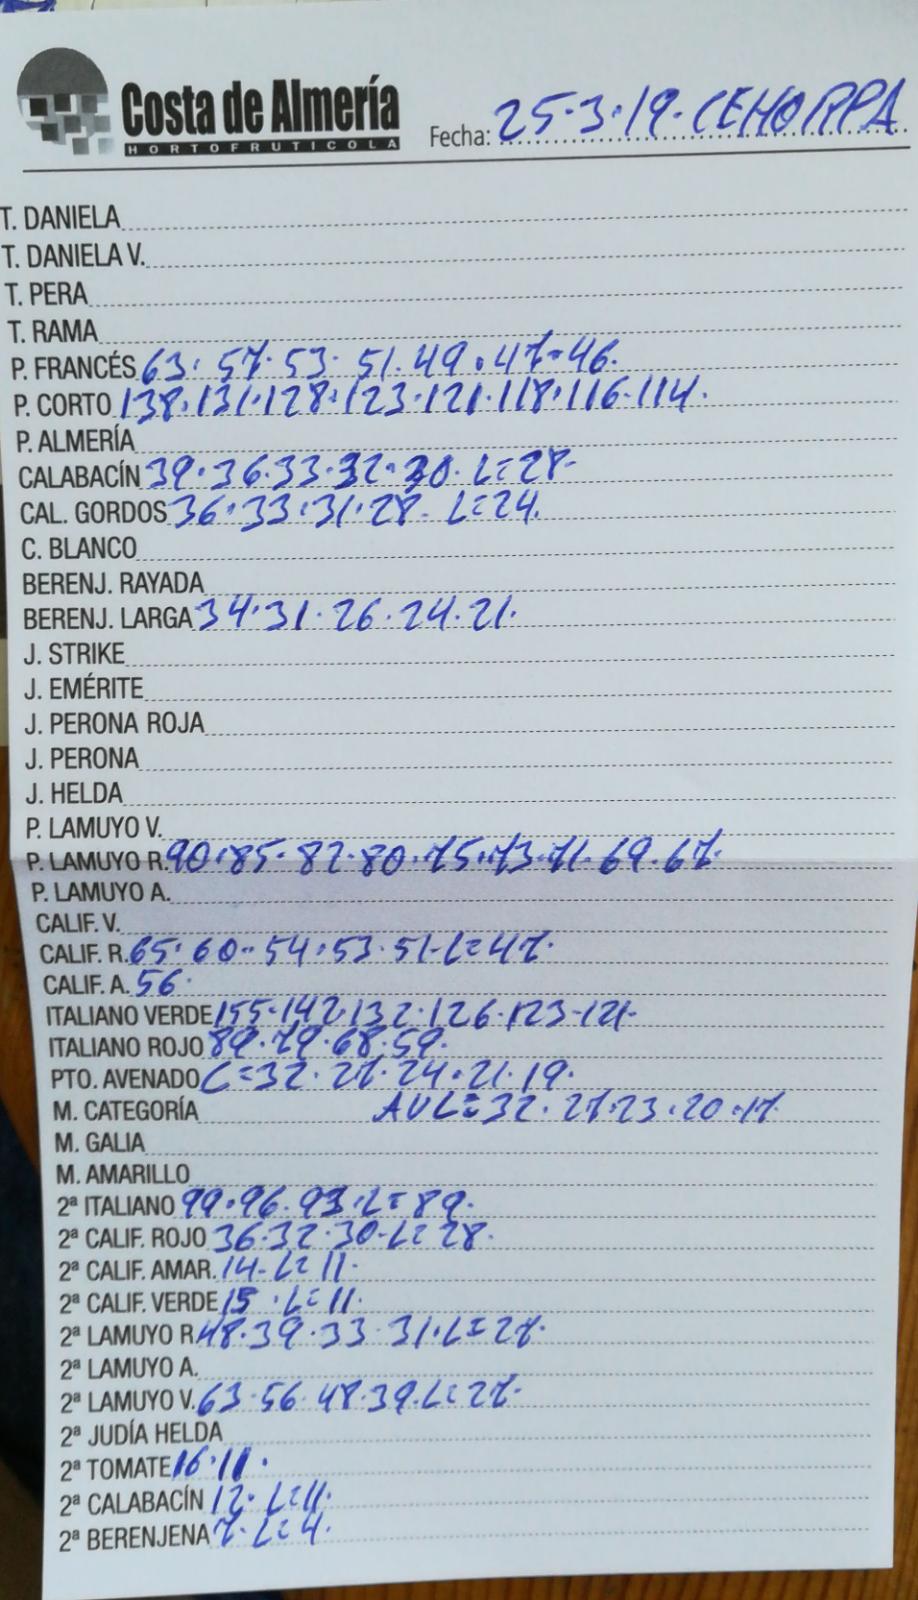 Costa de Almería
HORTOFRUTICOLA
Fecha: 25·3·19· CEHORPA
T. DANIELA
T. DANIELA V.
T. PERA
T. RAMA
P. FRANCÉS 63· 57· 53· 51· 49· 47· 46·
P. CORTO 138·131·128·123·121·118·116·114·
P. ALMERÍA
CALABACÍN 39·36·33·32·30· L=28·
CAL. GORDOS 36·33·31·28· L=24·
C. BLANCO
BERENJ. RAYADA
BERENJ. LARGA 34·31·26·24·21·
J. STRIKE
J. EMÉRITE
J. PERONA ROJA
J. PERONA
J. HELDA
P. LAMUYO V.
P. LAMUYO R. 90·85·82·80·75·73·71·69·67·
P. LAMUYO A.
CALIF. V.
CALIF. R. 65·60·54·53·51·L=47·
CALIF. A. 56·
ITALIANO VERDE 155·142·132·126·123·121·
ITALIANO ROJO 89·79·68·59·
PTO. AVENADO C=32·27·24·21·19·
M. CATEGORÍA AVL=32·27·23·20·17·
M. GALIA
M. AMARILLO
2ª ITALIANO 99·96·93·L=89·
2ª CALIF. ROJO 36·32·30·L=28·
2ª CALIF. AMAR. 14·L=11·
2ª CALIF. VERDE 15 ·L=11·
2ª LAMUYO R 48·39·33·31·L=27·
2ª LAMUYO A.
2ª LAMUYO V. 63·56·48·39·L=27·
2ª JUDÍA HELDA
2ª TOMATE 16·11·
2ª CALABACÍN 12·L=11·
2ª BERENJENA 7·L=4·